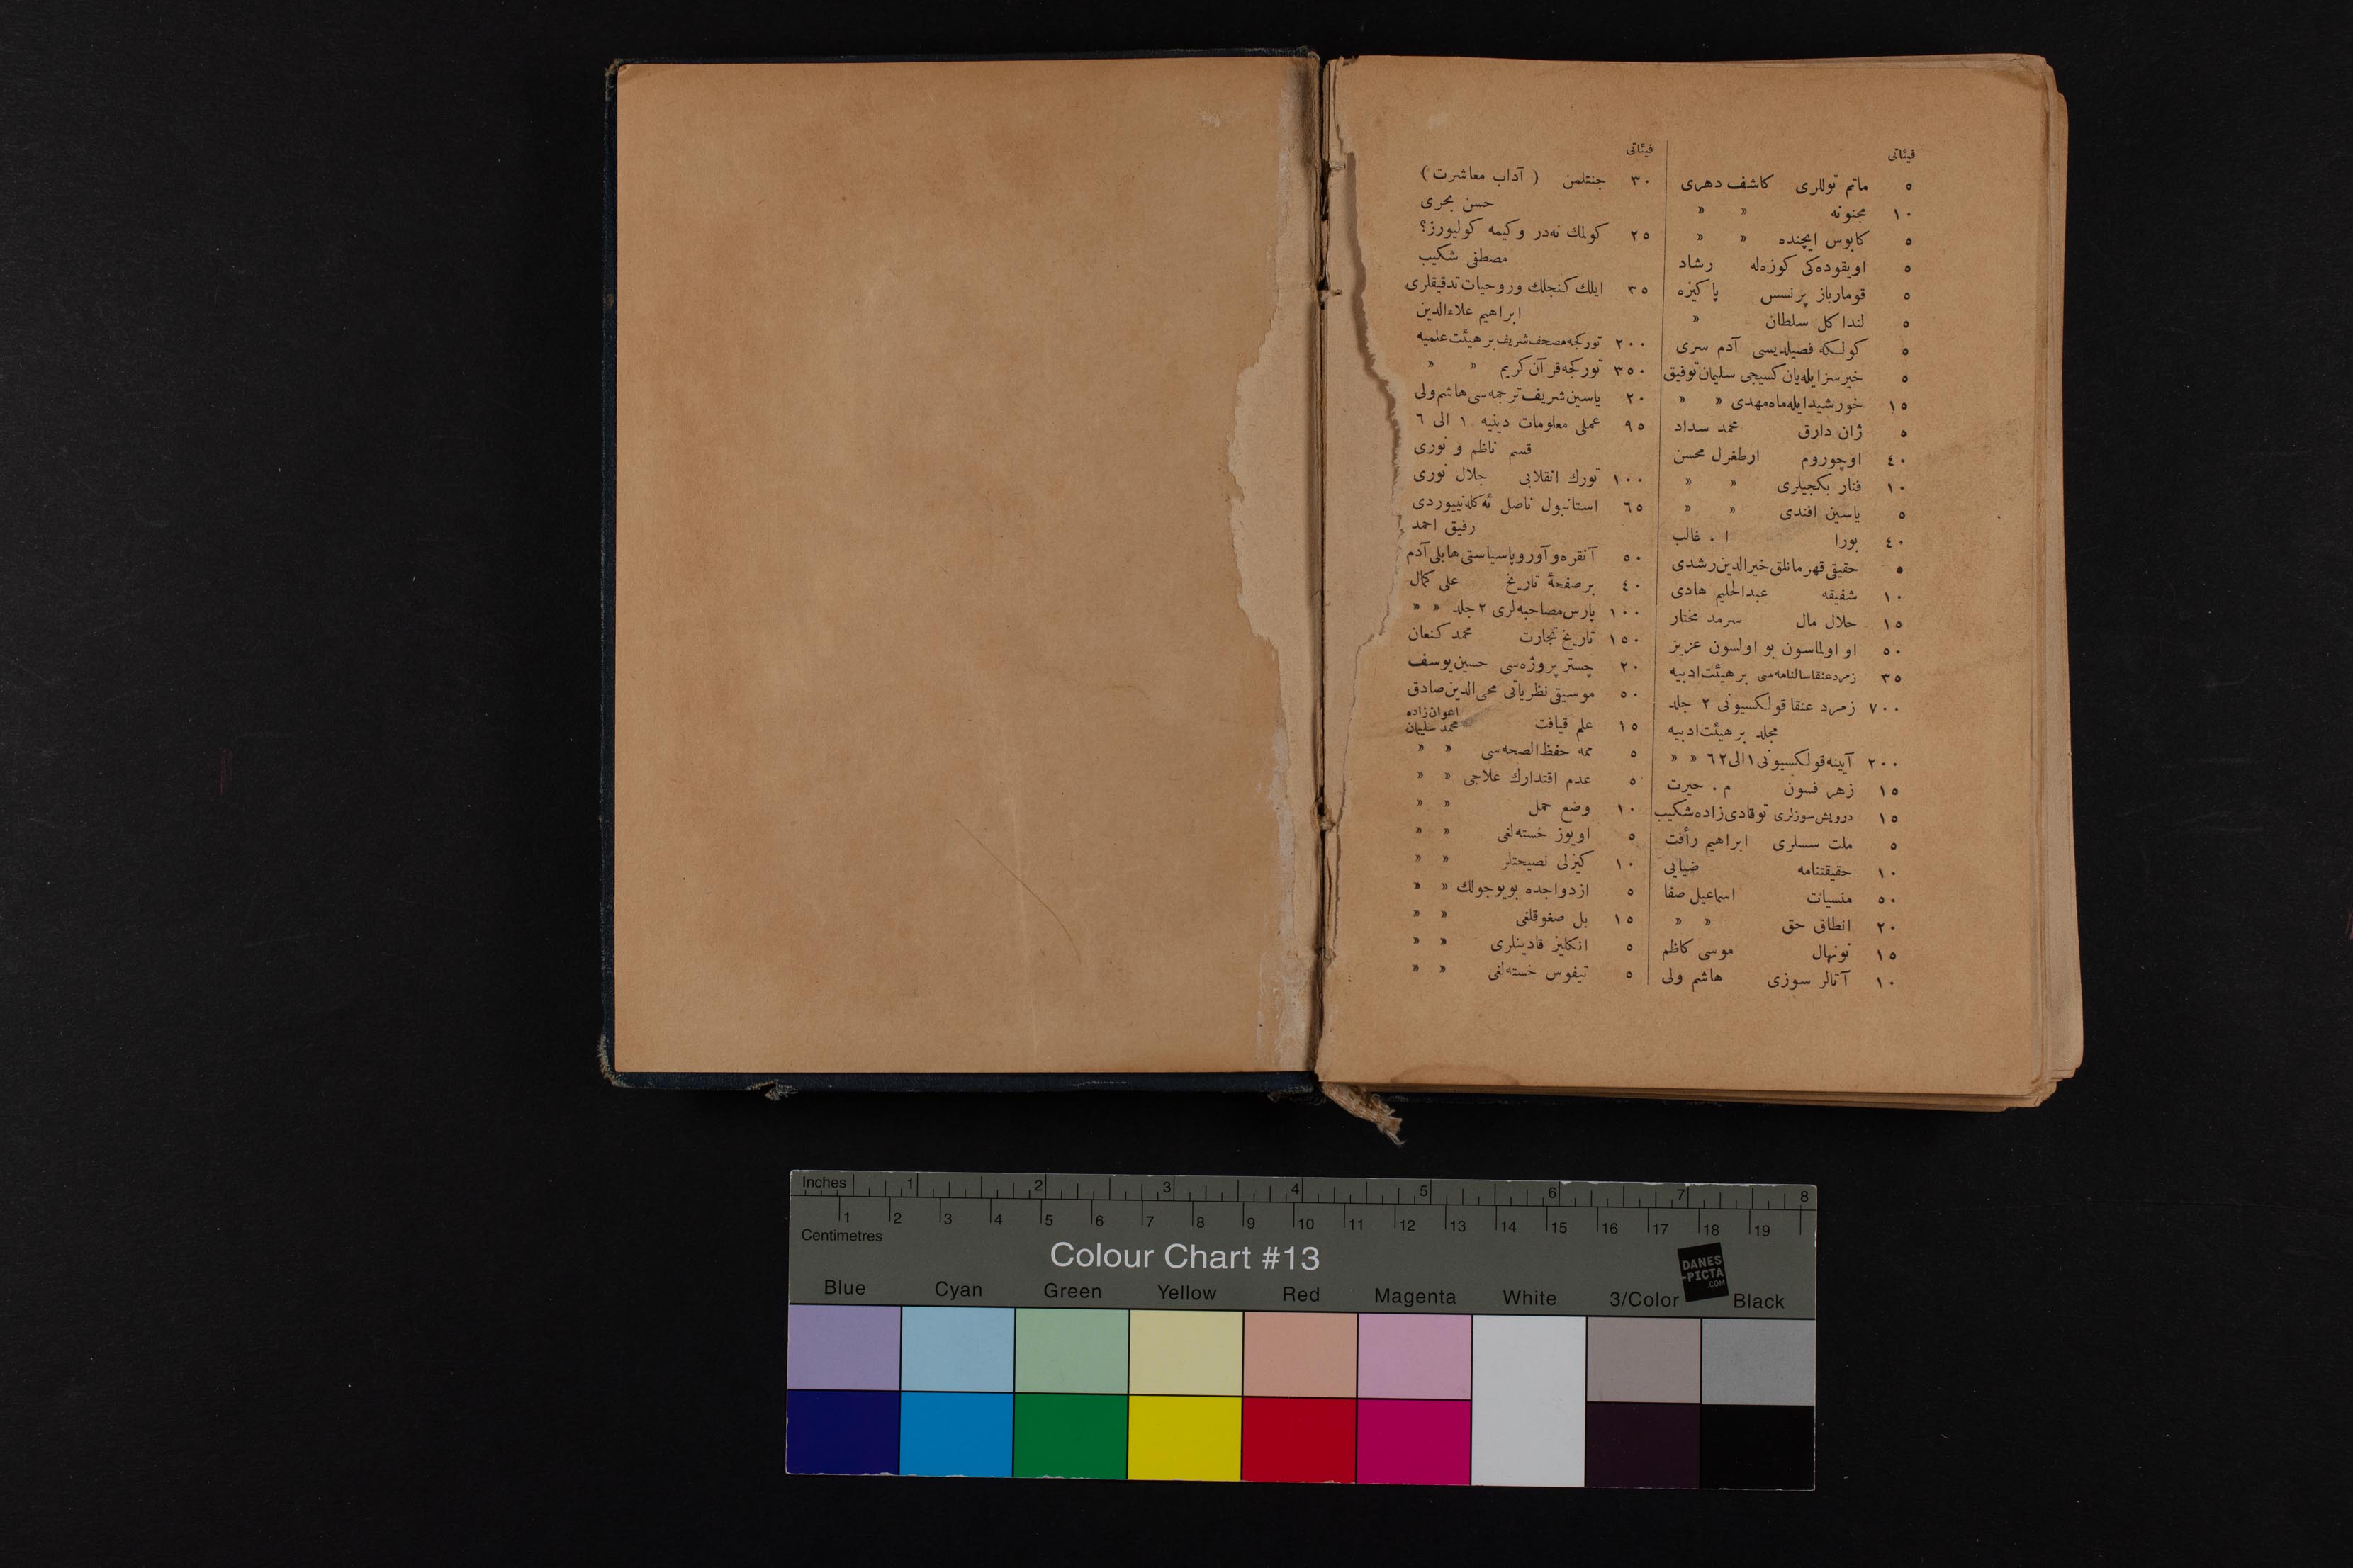 فيئاتى
٥ ماتم توللرى كاشف دهرى
١٠ مجنونه » »
٥ كابوس ايچنده » »
٥ اويقوده‌كى كوزه‌له رشاد
٥ قومارباز پرنسس پاكيزه
٥ لنداكل سلطان »
٥ كولكه فصيلديسى آدم سرى
٥ خيرسز ايله‌يان كسيجى سليمان توفيق
١٥ خورشيد ايله ماه مهدى » »
٥ ژان دارق محمد سداد
٤٠ اوچوروم ارطغرل محسن
١٠ فنار بكجيلرى » »
٥ ياسين افندى » »
٤٠ بورا ا . غالب
٥ حقيقى قهرمانلق خيرالدين رشدى
١٠ شفيقه عبدالحليم هادى
١٥ حلال مال سرمد مختار
٥٠ او اولماسون بو اولسون عزيز
٣٥ زمرد عنقا سالنامه‌سى بر هيئت ادبيه
٧٠٠ زمرد عنقا قولكسيونى ٢ جلد
مجلد بر هيئت ادبيه
٢٠٠ آيينه قولكسيونى ١ الى ٦٢ » »
١٥ زهر فسون م . حيرت
١٥ درويش سوزلرى توقادى زاده شكيب
٥ ملت سسلرى ابراهيم رأفت
١٠ حقيقتنامه ضيايى
٥٠ منسيات اسماعيل صفا
٢٠ انطاق حق » »
١٥ نونهال موسى كاظم
١٠ آتالر سوزى هاشم ولى
فيئاتى
٣٠ جنتلمن ( آداب معاشرت )
حسن بحرى
٢٥ كولمك نه‌در و كيمه كوليورز؟
مصطفى شكيب
٣٥ ايلك كنجلك و روحيات تدقيقلرى
ابراهيم علاءالدين
٢٠٠ توركجه مصحف شريف بر هيئت علميه
٣٥٠ توركجه قرآن كريم » »
٢٠ ياسين شريف ترجمه‌سى هاشم ولى
٩٥ عملى معلومات دينيه ١ الى ٦
قسم ناظم و نورى
١٠٠ تورك انقلابى جلال نورى
٦٥ استانبول ناصل ئه‌كله‌نييوردى
رفيق احمد
٥٠ آنقره و آوروپا سياستى هابلى آدم
٤٠ بر صفحۀ تاريخ على كمال
١٠٠ پارس مصاحبه‌لرى ٢ جلد » »
١٥٠ تاريخ تجارت محمد كنعان
٢٠ چستر پروژه‌سى حسين يوسف
٥٠ موسيقى نظرياتى محى الدين صادق
١٥ علم قيافت اعوان زاده محمد سليمان
٥ ممه حفظ الصحه‌سى » »
٥ عدم اقتدارك علاجى » »
١٠ وضع حمل » »
٥ اويوز خسته‌لغى » »
١٠ كيزلى نصيحتلر » »
٥ ازدواجده بويوجولك » »
١٥ بل صغوقلغى » »
٥ انكليز قادينلرى » »
٥ تيفوس خسته‌لغى » »
Inches 1 2 3 4 5 6 7 8
1 2 3 4 5 6 7 8 9 10 11 12 13 14 15 16 17 18 19
Centimetres
Colour Chart #13
DANES
-PICTA
.COM
Blue Cyan Green Yellow Red Magenta White 3/Color Black